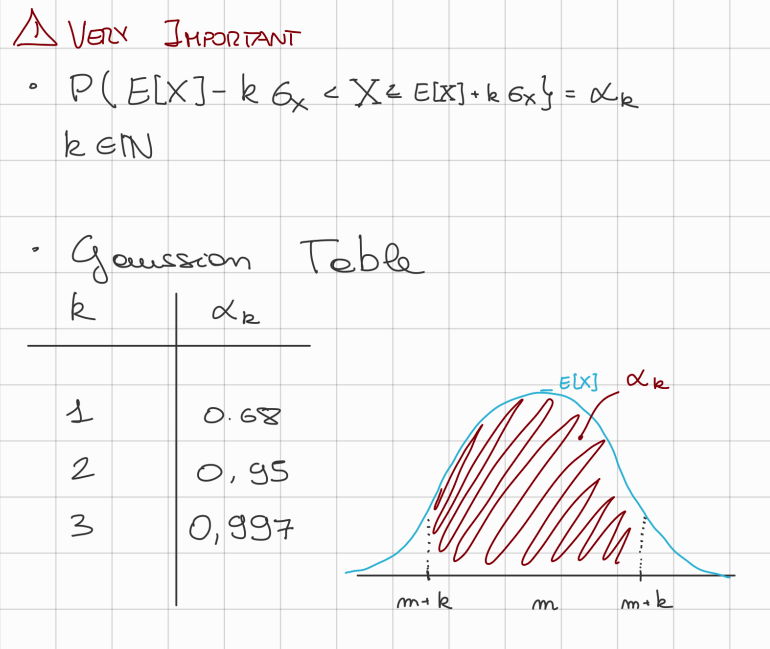 VERY IMPORTANT
• P( E[X] - k σx < X ≤ E[X] + k σx } = αk
k ∈ ℕ
• Gaussian Table
k αk
1 0.68
2 0,95
3 0,997
E[X] αk
m+k m m+k